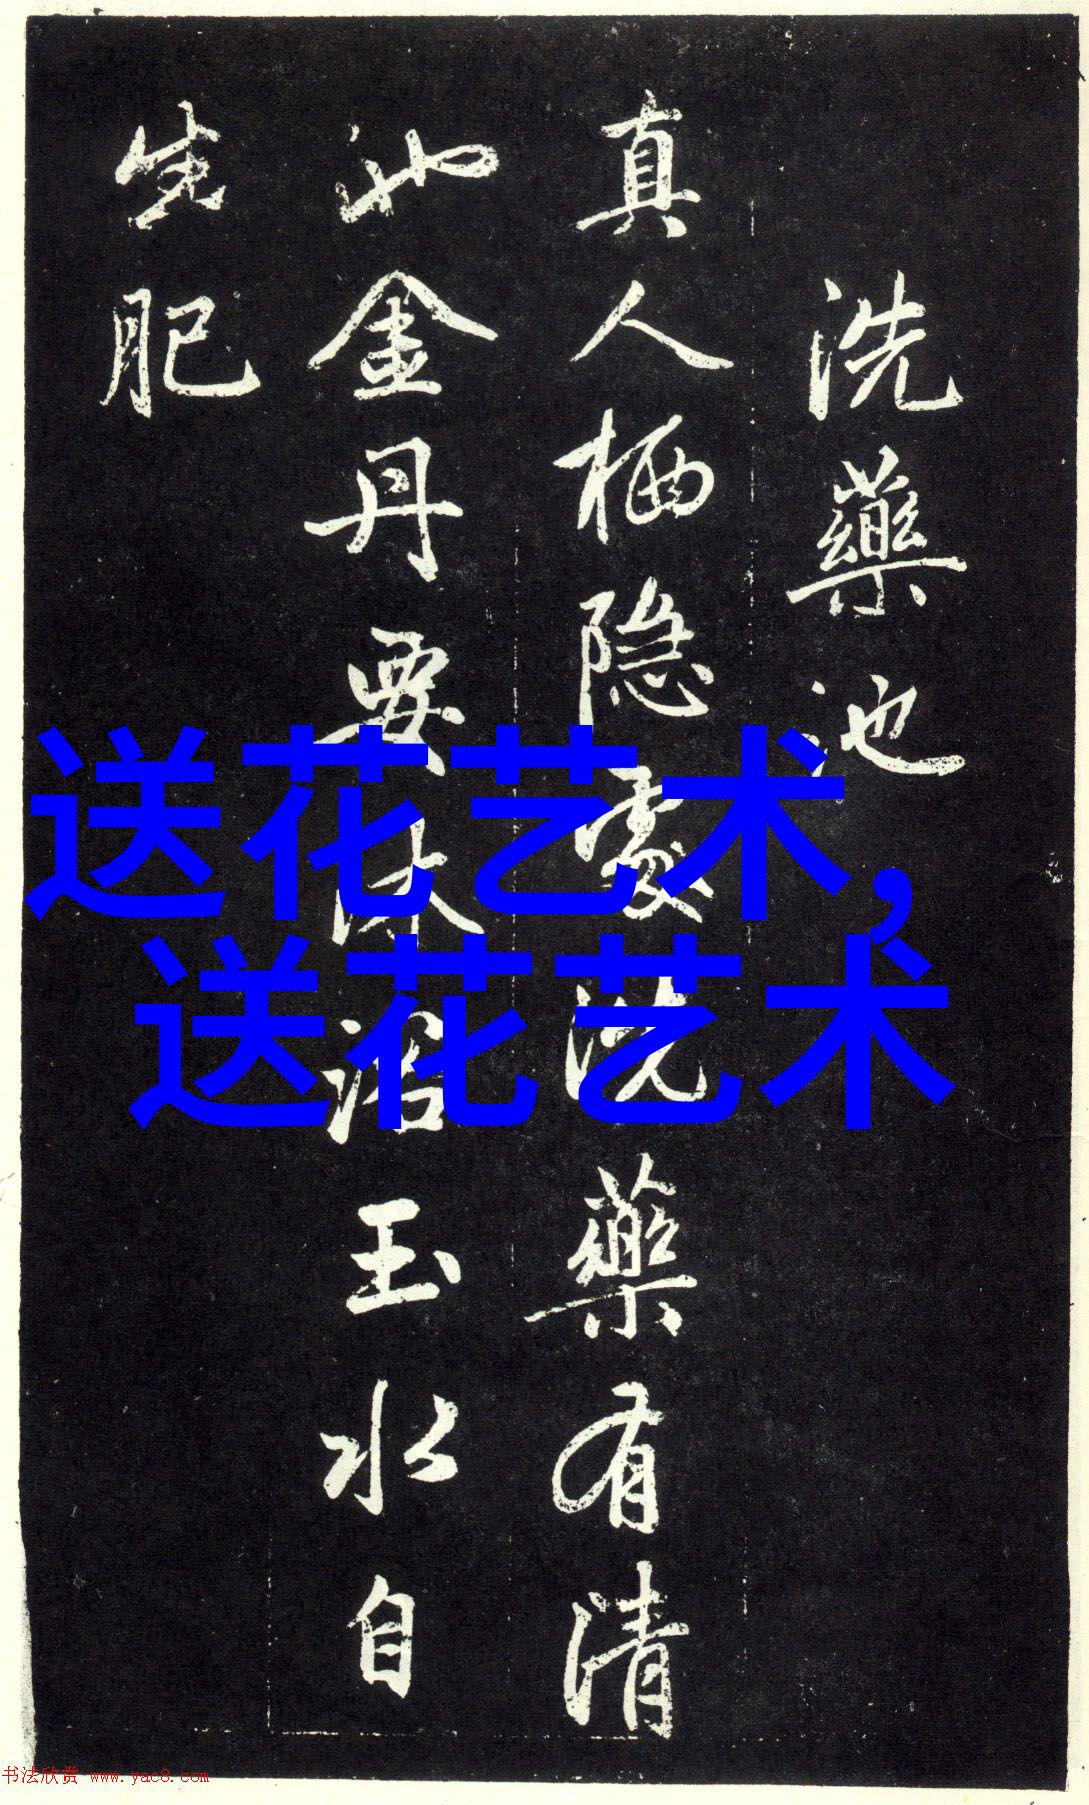 洗藥池
真人栖隐處洗藥有清
沘金丹要沐浴玉水自
生肥
送花艺术,
送花艺术
书法欣赏 www.yac8.com